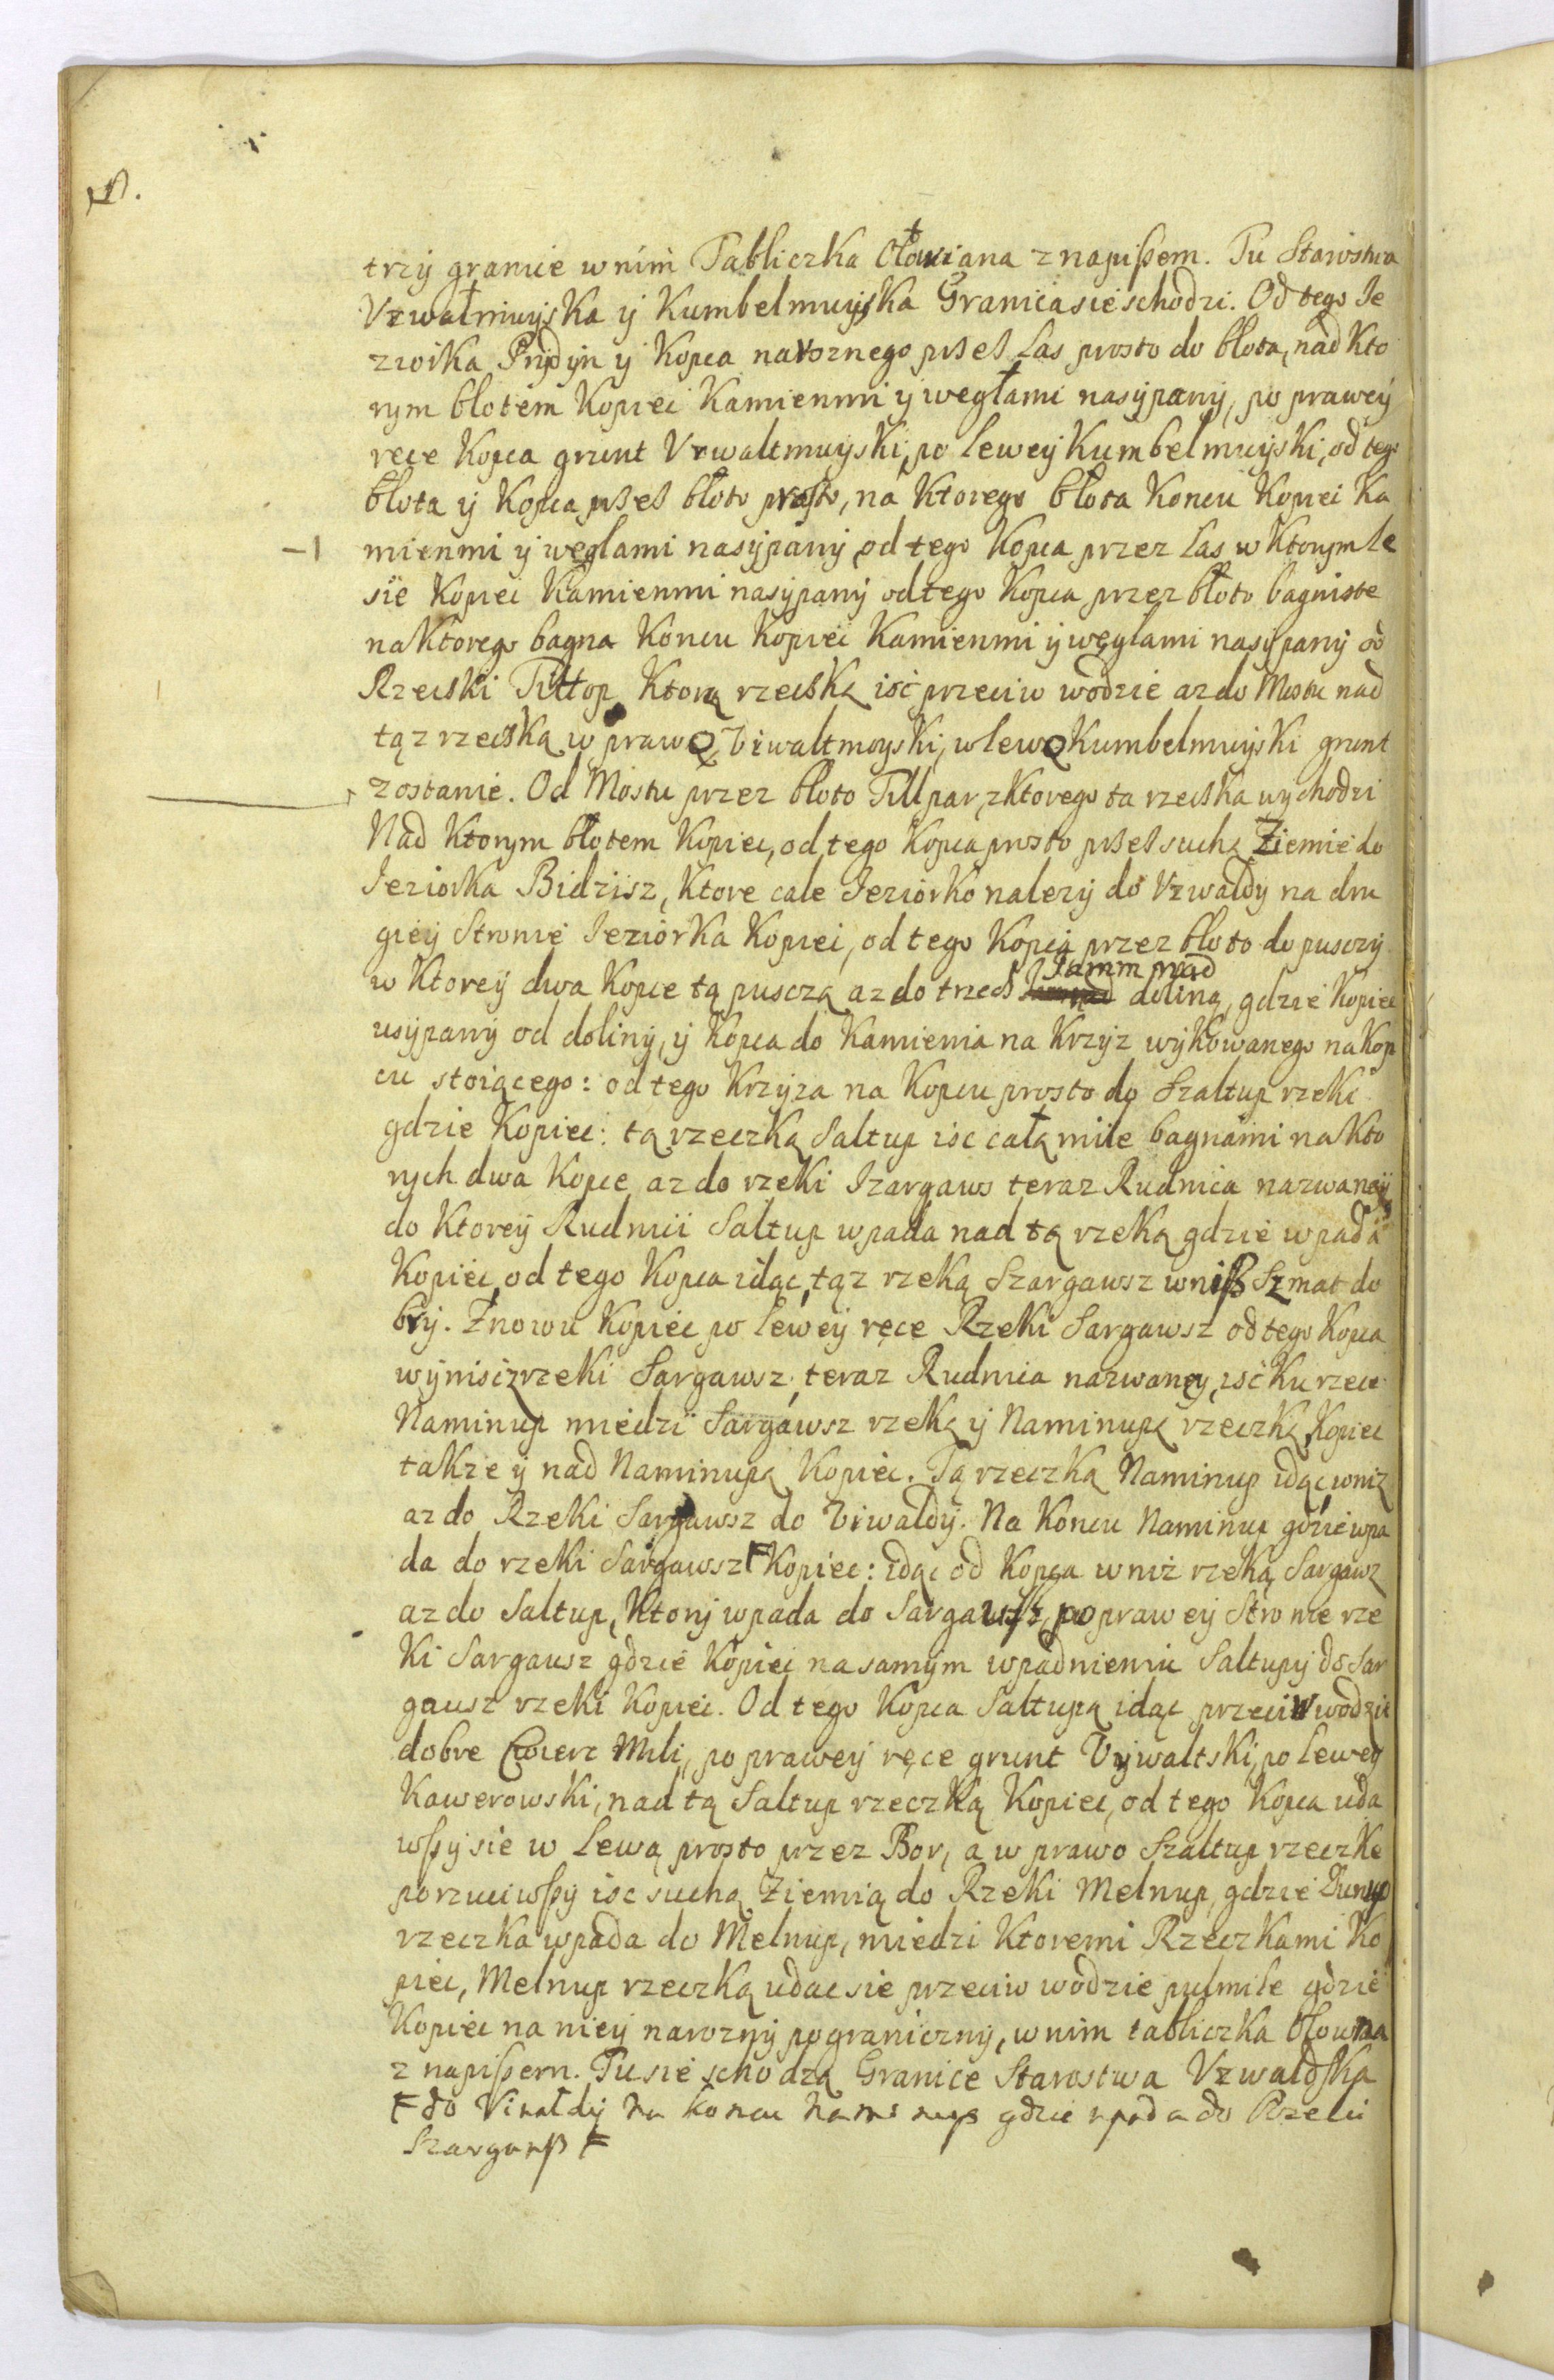 trzy granice w nim Tabliczka Ołowiana z napißem. Tu Starostwa
Vzwałmuyska y Kumbelmuyska Granica sie schodzi. Od tego Je
ziorka Pnydyn y Kopca naroznego pßeß Las prosto do błota, nad kto
rym błotem Kopiec Kamienmi y węgłami nasypany, po prawey
ręce Kopca grunt Vzwaltmuyski, po lewey Kumbelmuyski, od tego
błota y Kopca pßeß błoto prosto, na ktorego błota Koncu Kopiec Ka
mienmi y węglami nasypany od tego Kopca przez las w ktorym le
sie Kopiec Kamienmi nasypany od tego Kopca przez błoto bagniste
na ktorego bagna Koncu Kopiec Kamienmi y węglami nasypany od
Rzecski Tiltop ktorą rzecską isc przeciw wodzie az do Mostu nad
tąz rzecską w prawo Vzwaltmoyski, w lewo Kumbelmuyski grunt
zostanie. Od Mostu przez błoto Tillpar, z ktorego ta rzecska wychodzi
Nad ktorym błotem Kopiec, od tego Kopca prosto pßeß suchą Ziemię do
Jeziorka Bidzisz, ktore cale Jeziorko nalezy do Vzwałdy na dru
giey Stronie Jeziorka Kopiec, od tego Kopca przez błoto do pusczy
w ktorey dwa Kopce tą pusczą az do trzech Jamm nad doliną, gdzie Kopiec
usypany od doliny, y Kopca do Kamienia na Krzyz wykowanego na Kop
cu stoiącego: od tego Krzyza na Kopcu prosto do Szaltup rzeki
gdzie Kopiec: tą rzeczką Saltup isc całą mile bagnami na kto
rych dwa Kopce az do rzeki Szargaws teraz Rudnica nazwaney
do ktorey Rudnii Saltup wpada nad tą rzeką gdzie wpada
Kopiec, od tego Kopca idąc, tąz rzeką Szargawsz wniß Szmat do
bry. Znowu Kopiec po lewey ręce Rzeki Sargawsz od tego Kopca
wynisc z rzeki Sargawsz, teraz Rudnia nazwaney, isc ku rzece
Naminup miedzi Sargawsz rzeką y Naminupą rzeczką Kopiec
takze y nad Naminupą Kopiec. Tą rzeczką Naminup idąc wniz
az do Rzeki Sargawsz do Vzwałdy. Na Koncu Naminup gdzie wpa
da do rzeki Sargawsz F Kopiec: idąc od Kopca wniz rzeką Sargawz
az do Saltup, ktory wpada do Sargawsz, po prawey Stronie rze
ki Sargausz gdzie Kopiec na samym wpadnieniu Saltupy do Sar
gausz rzeki Kopiec. Od tego Kopca Saltupą idąc przeciw wodzie
dobre Cwierc Mili, po prawey ręce grunt Vzwaltski, po lewey
Kawerowski, nad tą Saltup rzeczką Kopiec, od tego Kopca uda
wßy sie w Lewą prosto przez Bor, a w prawo Szaltup rzeczkę
porzuciwßy isc suchą Ziemią do Rzeki Melnup, gdzie
rzeczka wpada do Melnup, miedzi ktoremi Rzeczkami Ko
piec, Melnup rzeczką udac sie przeciw wodzie pulmile gdzie
Kopiec na niey narozny pograniczny, w nim tabliczka Ołowna
z napißem. Tu sie schodzą Granice Starostwa Vzwaldska
F do Viwałdy na Koncu Naminup gdzie wpada do Rzeki
Szargawß F